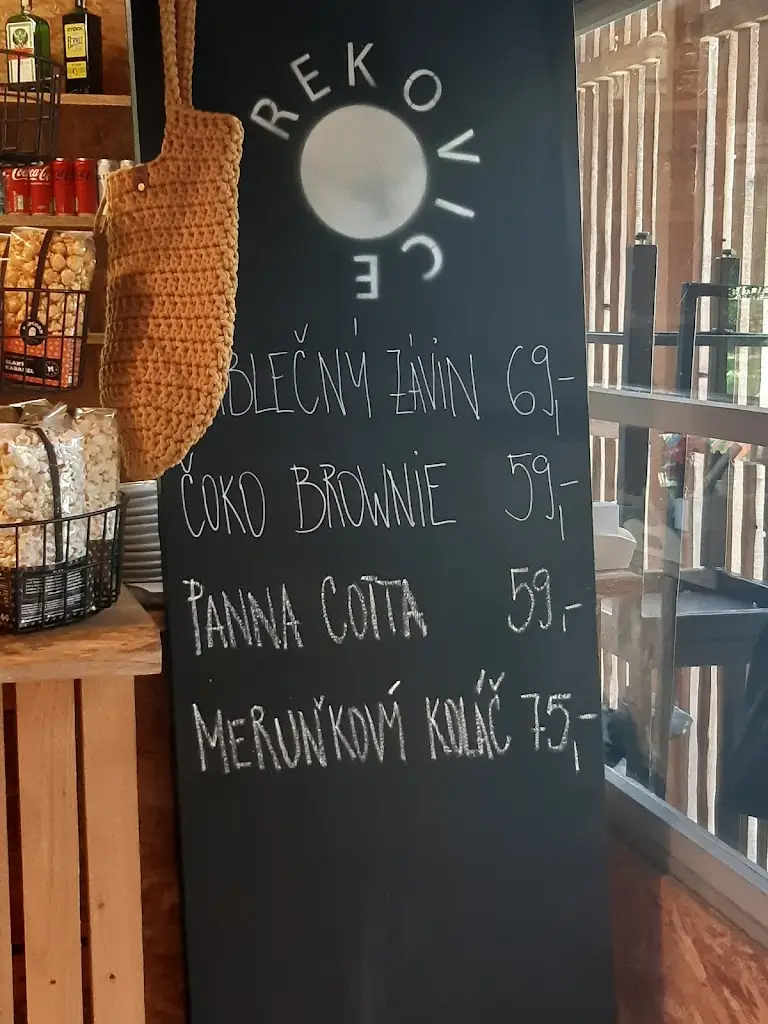 REKOVICE
BLEČNÝ ZÁVIN 69,-
ČOKO BROWNIE 59,-
PANNA COTTA 59,-
MERUŇKOVÝ KOLÁČ 75,-
Coca-Cola
SLANÝ
KARAMEL